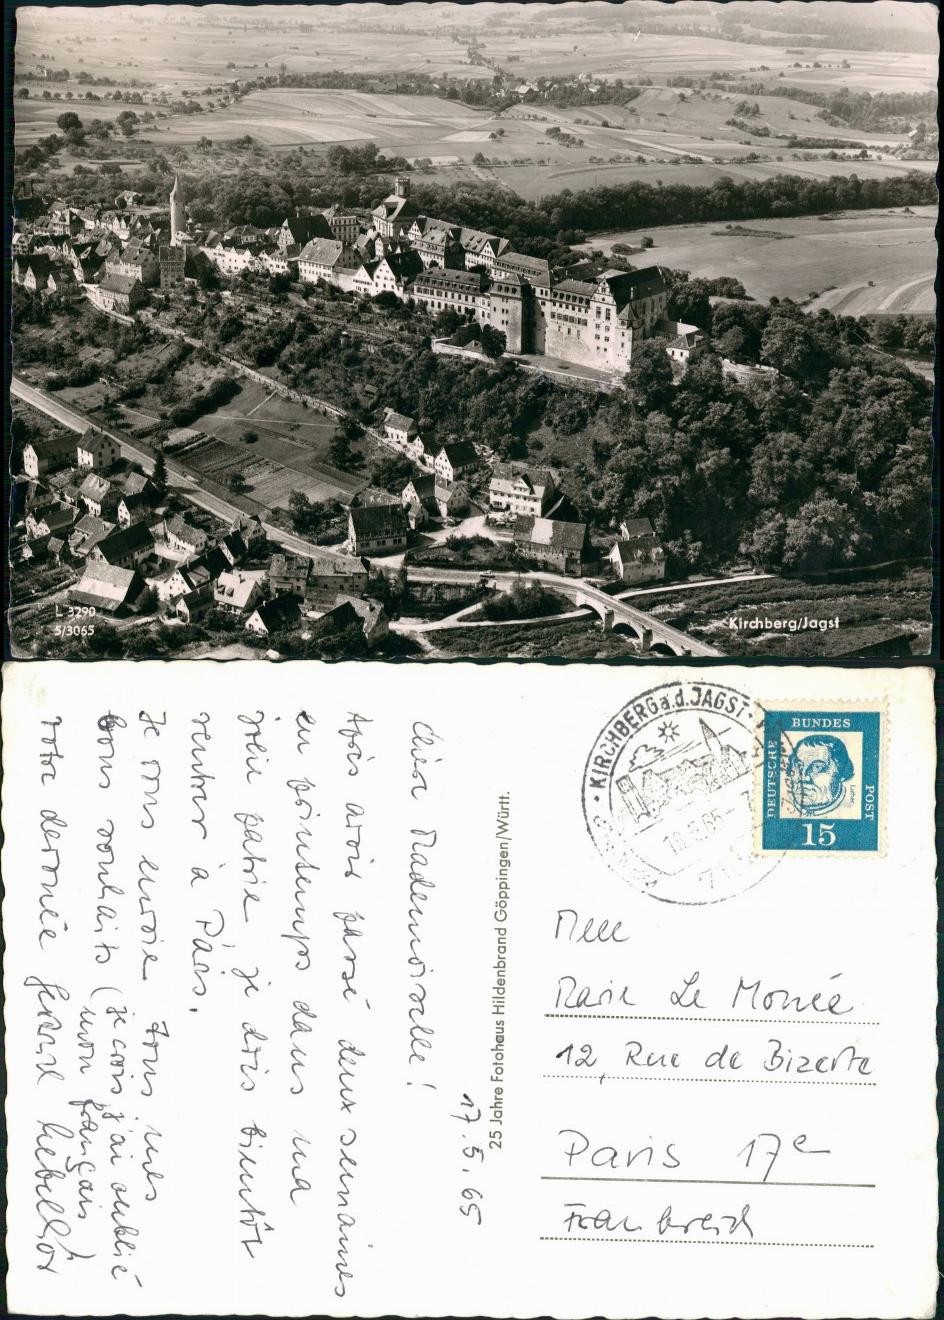 L 3290
5/3065
Kirchberg/Jagst
KIRCHBERG a.d. JAGST
DEUTSCHE BUNDES POST
Luther
15
25 Jahre Fotohaus Hildenbrand Göppingen/Württ.
17.5.65
Chère Mademoiselle!
Après avoir passé deux semaines
en printemps dans ma
jolie patrie je dois bientôt
rentrer à Paris.
Je vous envoie tous mes
bons souhaits (je crois j'ai oublié
mon français!)
votre dévouée
Melle
Marie Le Monée
12, Rue de Bizerte
Paris 17e
Frankreich